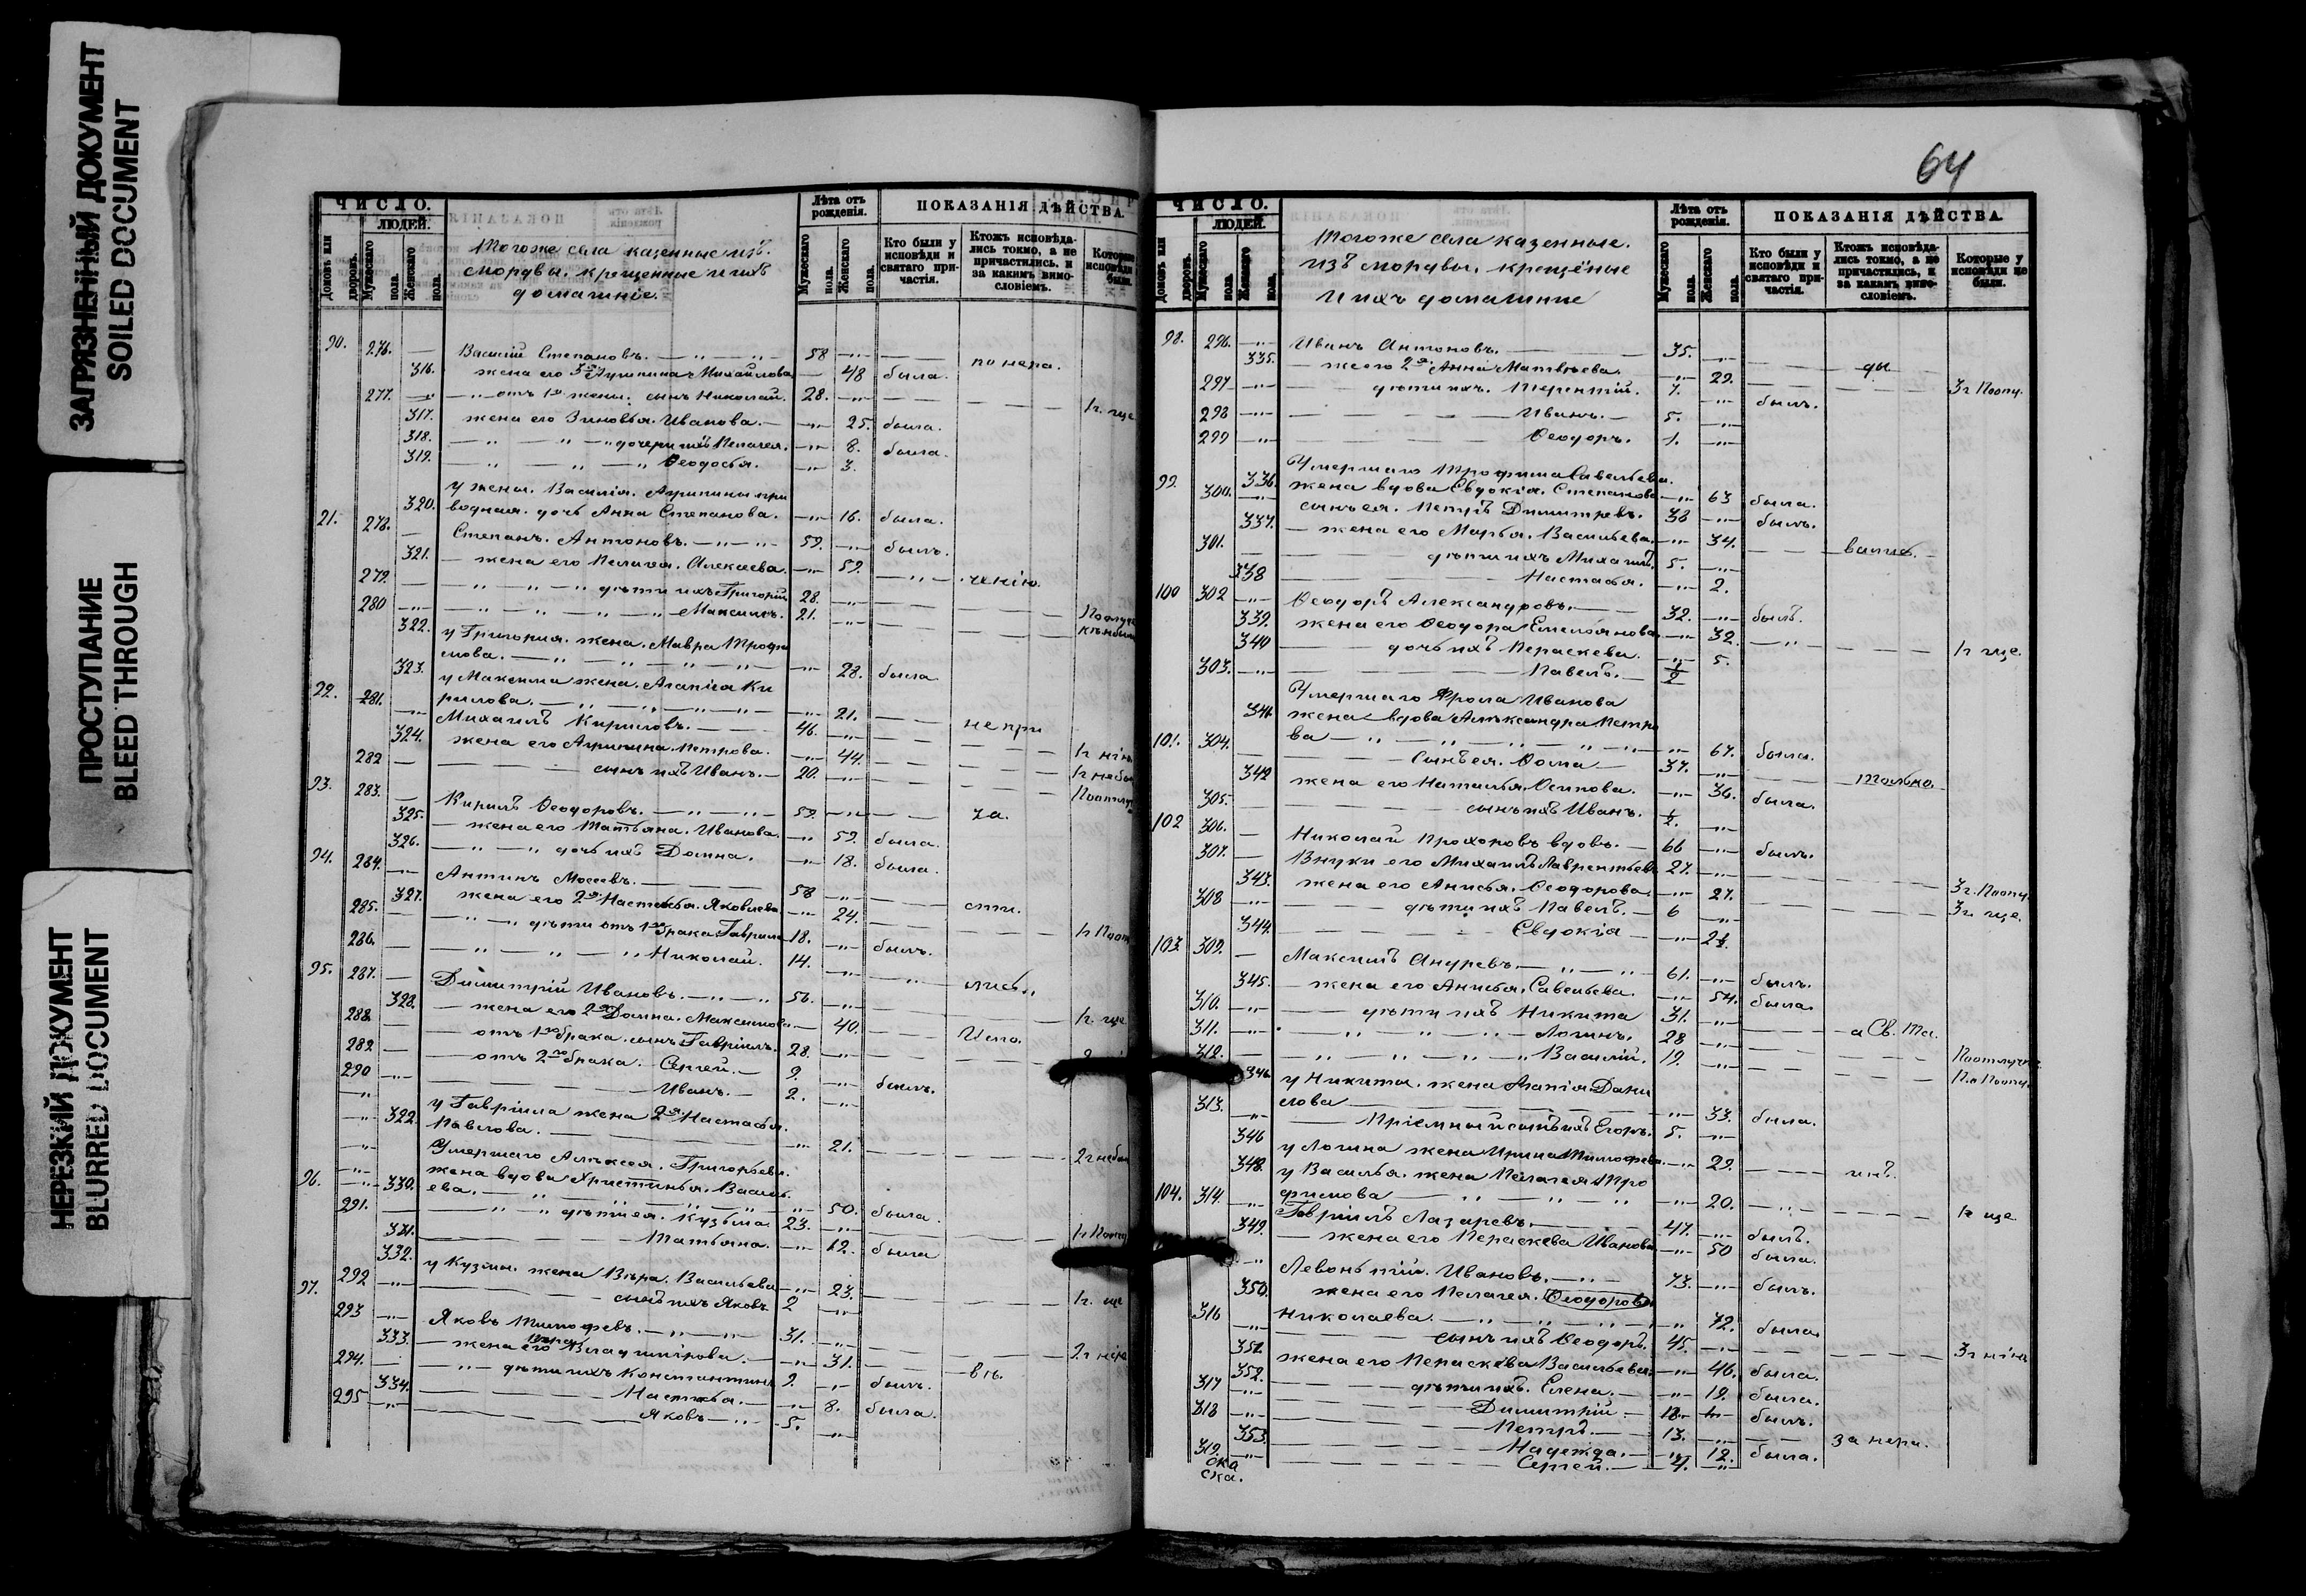 ЗАГРЯЗНЕННЫЙ ДОКУМЕНТ
SOILED DOCUMENT
ПРОСТУПАНИЕ
BLEED THROUGH
НЕРЕЗКИЙ ДОКУМЕНТ
BLURRED DOCUMENT
ЧИСЛО.
ЛЮДЕЙ.
Домовъ или дворовъ.
Мужескаго пола.
Женскаго пола.
Тогоже села казенные изъ
мордвы. крещенные и ихъ
домашніе.
Лѣта отъ рожденія.
Мужескаго пола.
Женскаго пола.
ПОКАЗАНІЯ ДѢЙСТВА.
Кто были у исповѣди и святаго причастія.
Ктожъ исповѣдались токмо, а не причастились, и за какимъ винословіемъ.
Которые исповѣди были.
90. 276. Василій Степановъ. 58
316. жена его 3я Агрипина Михайлова 48 была. по нера.
277. отъ 1й жены. сынъ Николай. 28.
317. жена его Зиновья. Иванова. 25. была.
318. дочери ихъ Пелагея. 8. была.
319. Ѳеодосья. 3.
у жены. Василія. Агрипины при
320. водная. дочь Анна Степанова. 16. была.
91. 278. Степанъ. Антоновъ. 59. былъ.
321. жена его Пелагея. Алексеева. 59.
279. дѣти ихъ Григорій 28.
280 Максимъ. 21.
322. у Григорія. жена. Мавра Трофи
мова. 28. была
323. у Максима жена. Агапія Ки
рилова. 21.
92. 281. Михаилъ Кириловъ. 46. не при
324. жена его Агрипина. Петрова. 44.
282 сынъ ихъ Иванъ. 20.
93. 283. Кирилъ Ѳеодоровъ. 59. за.
325. жена его Татьяна. Иванова. 59. была.
326. дочь ихъ Домна. 18. была.
94. 284. Антипъ Мосевъ. 58
327. жена его 2я Настасья. Яковлева 24.
285. дѣти отъ 1го брака. Гаврила 18. былъ.
286. Николай. 14.
95. 287. Димитрій Ивановъ. 56.
328. жена его 2я Домна. Максимова 40.
288. отъ 1го брака. сынъ Гавріилъ. 28.
289 отъ 2го брака. Сергей. 9. былъ.
290 Иванъ. 2.
у Гавріила жена 2я Настасья.
322. Павлова. 21.
Умершаго Алѣксея. Григорьева.
жена вдова Христинья. Василь
96. 330. ева. 50. была.
291. дѣти ея. Кузьма 23.
331. Татьяна. 12. была
332. у Кузмы. жена Вѣра. Васильева 23.
292 сынъ ихъ Яковъ 2
97. 293 Яковъ Тимофевъ. 31.
333. жена его Владимірова. 31.
294. дѣти ихъ Константинъ 9. былъ.
334. Настасья. 8. была.
295 Яковъ 5.
64
ЧИСЛО.
ЛЮДЕЙ.
Домовъ или дворовъ.
Мужескаго пола.
Женскаго пола.
Тогоже села казенные.
изъ мордвы. крещёные
и ихъ домашние
Лѣта отъ рожденія.
Мужескаго пола.
Женскаго пола.
ПОКАЗАНІЯ ДѢЙСТВА.
Кто были у исповѣди и святаго причастія.
Ктожъ исповѣдались токмо, а не причастились, и за какимъ винословіемъ.
Которые у исповѣди не были.
98. 296. Иванъ Антоновъ. 35.
335. же его 2я Анна Матвѣева. 29.
297 дѣти ихъ. Терентій. 7. былъ.
298 Иванъ. 5.
299 Ѳеодоръ. 1.
Умершаго Трофима Савельева.
99. 336. жена вдова Евдокія. Степанова 63 была.
300. сынъ ея. Петръ Димитревъ. 38 былъ.
337. жена его Марья. Васильева. 34.
301. дѣти ихъ Михаилъ. 5.
338 Настасья. 2.
100 302 Ѳеодоръ Александровъ. 32. былъ.
339. жена его Ѳеодора Емельянова 32.
340 дочь ихъ Пераскева. 5.
303. Павелъ. 1/2
Умершаго Фрола Иванова
341. жена вдова Алѣксандра Петро
ва 67. была.
101. 304. Сынъ ея. Ѳома 37. только
342 жена его Наталья. Осипова. 36. была.
305. сынъ ихъ Иванъ. 1/2.
102 306. Николай Прохоровъ вдовъ. 66 былъ.
307. Внуки его Михаилъ Лаврентьев 27.
343. жена его Анисья. Ѳеодорова. 27.
308 дѣти ихъ Павелъ. 6
344. Евдокія
103. 309. Максимъ Андревъ. 61. былъ.
345. жена его Анисья. Савельева. 54. была.
310. дѣти ихъ Никита 31. а Св. Та.
311. Логинъ. 28
312. Василій. 19.
346. у Никиты. жена Агапія Дани
лова 33. была.
313. Пріемный сынъ ихъ Егоръ. 5.
346 у Логина жена Ирина Тимофева. 29.
348. у Василья. жена Пелагея Тро
фимова 20.
104. 314. Гавріилъ Лазаревъ. 47. былъ.
349. жена его Пераскева Иванова 50 была.
Левонтий. Ивановъ. 73. былъ.
350. жена его Пелагея. Ѳеодорова
Николаева. 72. была.
316 сынъ ихъ Ѳеодоръ. 45.
351 жена его Пераскева Васильевна 46. была.
352. дѣти ихъ. Елена. 19. была.
317 Димитрій. 18 былъ.
318 Петръ. 13. за нера.
353. Надежда. 12. была.
319. Сергей. 4.